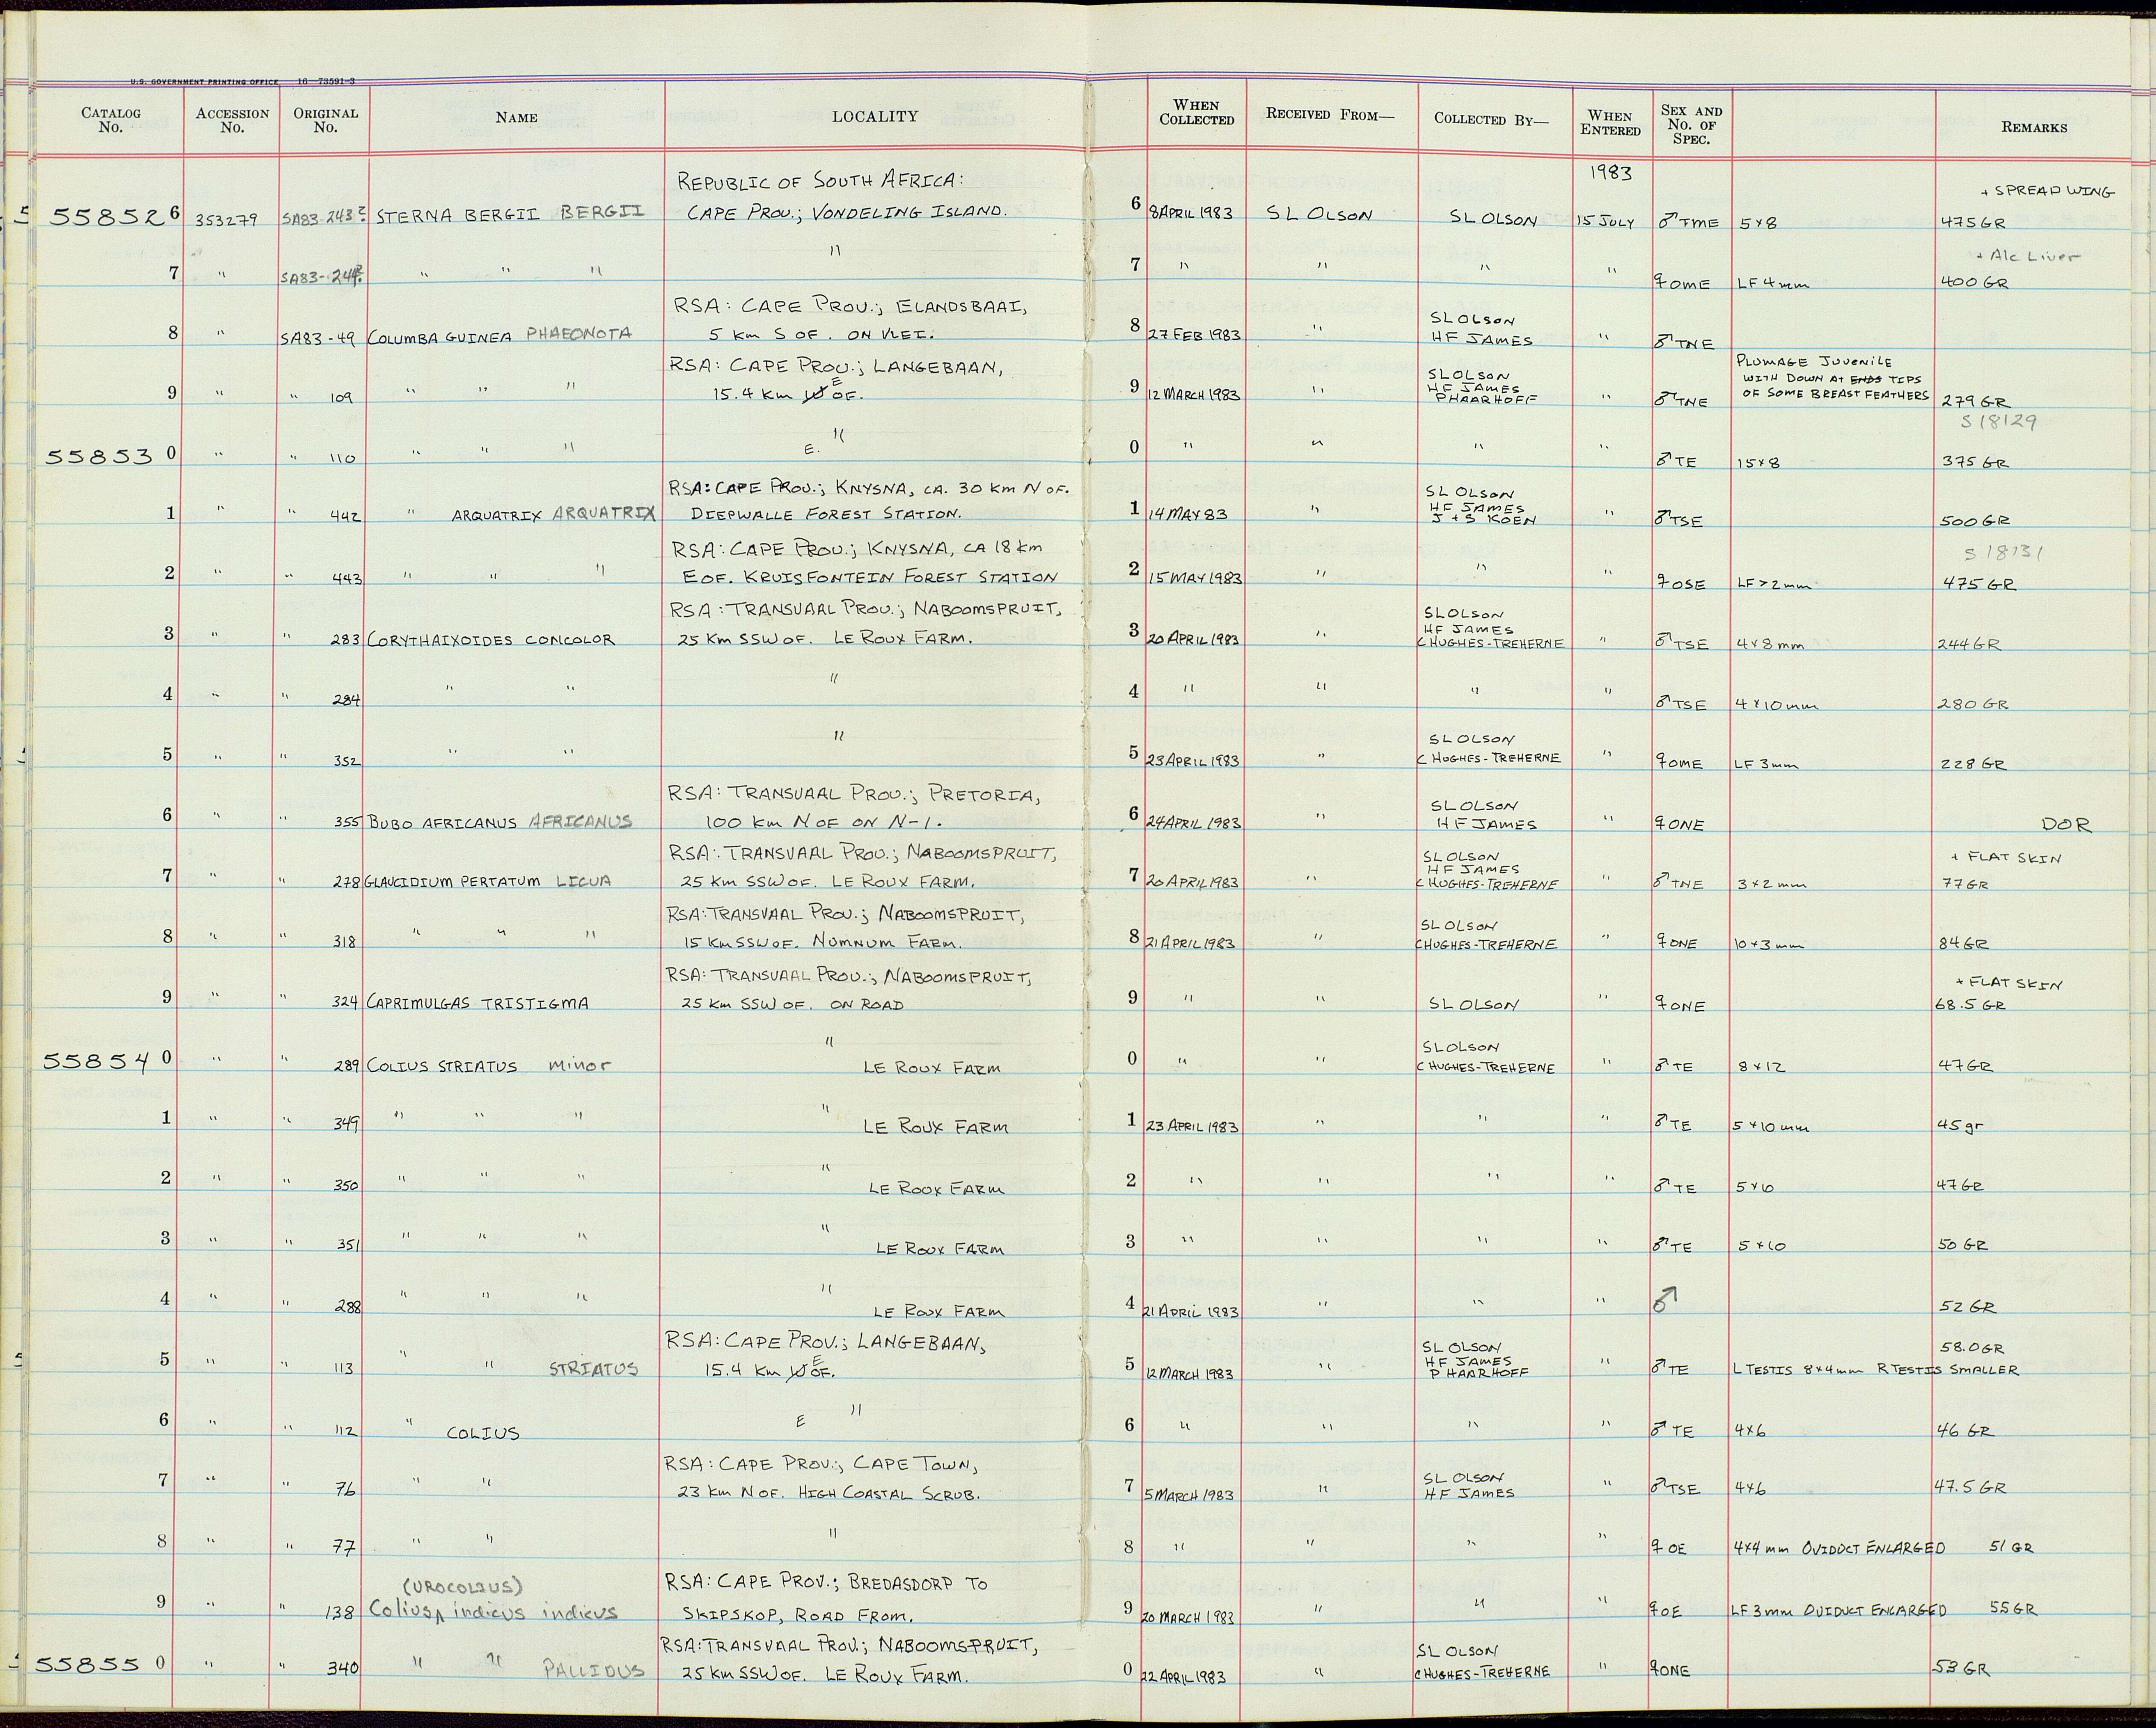 U.S. GOVERNMENT PRINTING OFFICE 16—73591-3
CATALOG No. ACCESSION No. ORIGINAL No. NAME LOCALITY WHEN COLLECTED RECEIVED FROM— COLLECTED BY— WHEN ENTERED SEX AND No. OF SPEC. REMARKS
1983
REPUBLIC OF SOUTH AFRICA: + SPREAD WING
55852 6 353279 SA83-243? STERNA BERGII BERGII CAPE PROV.; VONDELING ISLAND. 6 8 APRIL 1983 S L OLSON SL OLSON 15 JULY ♂ TME 5×8 475 GR
+ Alc Liver
7 " SA83-244? " " " " 7 " " " " ♀ OME LF 4mm 400 GR
RSA: CAPE PROV.; ELANDSBAAI, SL OLSON
8 " SA83-49 COLUMBA GUINEA PHAEONOTA 5 km S OF. ON VLEI. 8 27 FEB 1983 " HF JAMES " ♂ TNE
RSA: CAPE PROV.; LANGEBAAN, SL OLSON PLUMAGE JUVENILE
E HF JAMES WITH DOWN AT ENDS TIPS
9 " " 109 " " " 15.4 km W OF. 9 12 MARCH 1983 " P HAARHOFF " ♂ TNE OF SOME BREAST FEATHERS 279 GR
S 18129
55853 0 " " 110 " " " " E. 0 " " " " ♂ TE 15×8 375 GR
RSA: CAPE PROV.; KNYSNA, CA. 30 km N OF. SL OLSON
HF JAMES
1 " " 442 " ARQUATRIX ARQUATRIX DIEPWALLE FOREST STATION. 1 14 MAY 83 " J + S KOEN " ♂ TSE 500 GR
RSA: CAPE PROV.; KNYSNA, CA 18 km S 18131
2 " " 443 " " " E OF. KRUISFONTEIN FOREST STATION 2 15 MAY 1983 " " " ♀ OSE LF > 2mm 475 GR
RSA: TRANSVAAL PROV.; NABOOMSPRUIT, SL OLSON
HF JAMES
3 " " 283 CORYTHAIXOIDES CONCOLOR 25 Km SSW OF. LE ROUX FARM. 3 20 APRIL 1983 " C HUGHES-TREHERNE " ♂ TSE 4×8mm 244 GR
4 " " 284 " " " 4 " " " " ♂ TSE 4×10mm 280 GR
SL OLSON
5 " " 352 " " " 5 23 APRIL 1983 " C HUGHES-TREHERNE " ♀ OME LF 3mm 228 GR
RSA: TRANSVAAL PROV.; PRETORIA, SL OLSON
6 " " 355 BUBO AFRICANUS AFRICANUS 100 km N OF ON N-1. 6 24 APRIL 1983 " HF JAMES " ♀ ONE DOR
RSA: TRANSVAAL PROV.; NABOOMSPRUIT, SL OLSON + FLAT SKIN
HF JAMES
7 " " 278 GLAUCIDIUM PERTATUM LICUA 25 Km SSW OF. LE ROUX FARM. 7 20 APRIL 1983 " C HUGHES-TREHERNE " ♂ TNE 3×2mm 77 GR
RSA: TRANSVAAL PROV.; NABOOMSPRUIT, SL OLSON
8 " " 318 " " " 15 Km SSW OF. NUMNUM FARM. 8 21 APRIL 1983 " C HUGHES-TREHERNE " ♀ ONE 10×3mm 84 GR
RSA: TRANSVAAL PROV.; NABOOMSPRUIT, + FLAT SKIN
9 " " 324 CAPRIMULGAS TRISTIGMA 25 Km SSW OF. ON ROAD 9 " " SL OLSON " ♀ ONE 68.5 GR
" SL OLSON
55854 0 " " 289 COLIUS STRIATUS minor LE ROUX FARM 0 " " C HUGHES-TREHERNE " ♂ TE 8×12 47 GR
1 " " 349 " " " " LE ROUX FARM 1 23 APRIL 1983 " " " ♂ TE 5×10mm 45 gr
2 " " 350 " " " " LE ROUX FARM 2 " " " " ♂ TE 5×6 47 GR
3 " " 351 " " " " LE ROUX FARM 3 " " " " ♂ TE 5×10 50 GR
4 " " 288 " " " " LE ROUX FARM 4 21 APRIL 1983 " " " ♂ 52 GR
RSA: CAPE PROV.; LANGEBAAN, SL OLSON 58.0 GR
E HF JAMES
5 " " 113 " " STRIATUS 15.4 Km W OF. 5 12 MARCH 1983 " P HAARHOFF " ♂ TE L TESTIS 8×4mm R TESTIS SMALLER
6 " " 112 " COLIUS E " 6 " " " " ♂ TE 4×6 46 GR
RSA: CAPE PROV.; CAPE TOWN, SL OLSON
7 " " 76 " " 23 Km N OF. HIGH COASTAL SCRUB. 7 5 MARCH 1983 " HF JAMES " ♂ TSE 4×6 47.5 GR
8 " " 77 " " " 8 " " " " ♀ OE 4×4mm OVIDUCT ENLARGED 51 GR
(UROCOLIUS) RSA: CAPE PROV.; BREDASDORP TO
9 " " 138 Colius indicus indicus SKIPSKOP, ROAD FROM. 9 20 MARCH 1983 " " " ♀ OE LF 3mm OVIDUCT ENLARGED 55 GR
RSA: TRANSVAAL PROV.; NABOOMSPRUIT, SL OLSON
55855 0 " " 340 " " PALLIDUS 25 Km SSW OF. LE ROUX FARM. 0 22 APRIL 1983 " C HUGHES-TREHERNE " ♀ ONE 53 GR